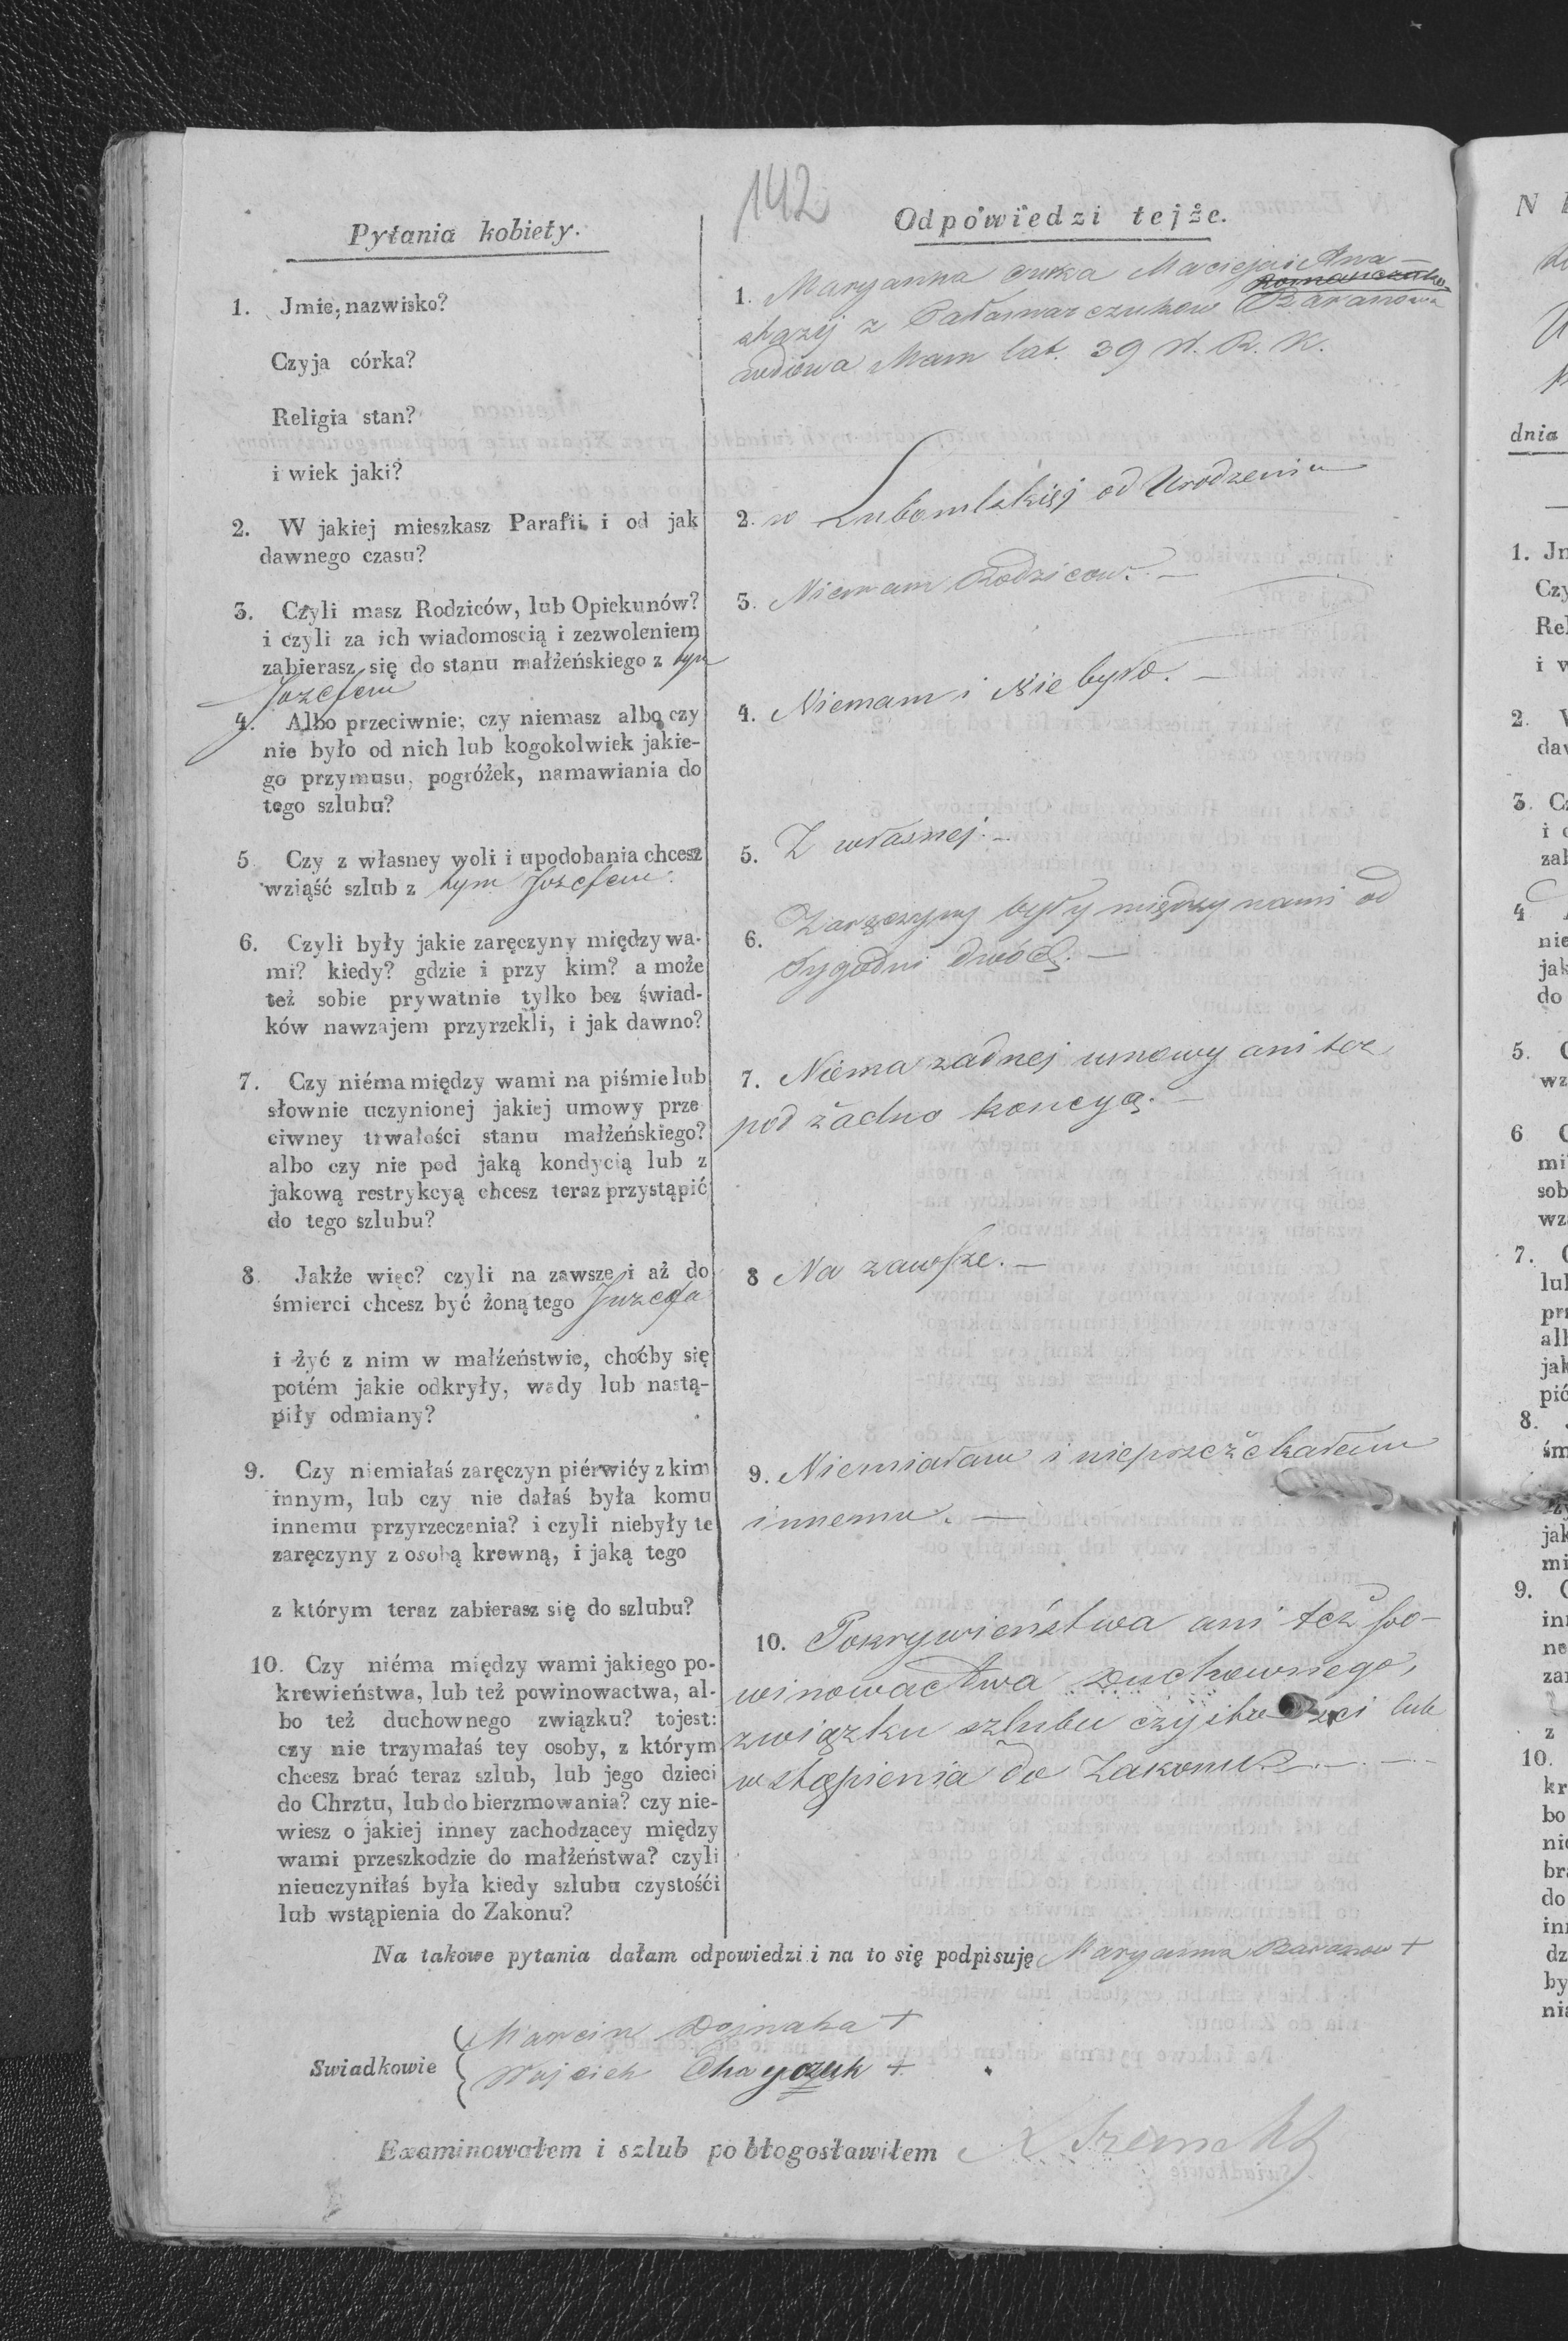 142
Pytania kobiety.
1. Jmie, nazwisko?
Czyja córka?
Religia stan?
i wiek jaki?
2. W jakiej mieszkasz Parafii i od jak
dawnego czasu?
3. Czyli masz Rodziców, lub Opiekunów?
i czyli za ich wiadomoscią i zezwoleniem
zabierasz się do stanu małżeńskiego z tym
Jozefem
4. Albo przeciwnie; czy niemasz albo czy
nie było od nich lub kogokolwiek jakie-
go przymusu, pogróżek, namawiania do
tego szlubu?
5 Czy z własney woli i upodobania chcesz
wziąść szlub z tym Jozefem.
6. Czyli były jakie zaręczyny między wa-
mi? kiedy? gdzie i przy kim? a może
też sobie prywatnie tylko bez świad-
ków nawzajem przyrzekli, i jak dawno?
7. Czy niéma między wami na piśmie lub
słownie uczynionej jakiej umowy prze
ciwney trwałości stanu małżeńskiego?
albo czy nie pod jaką kondycią lub z
jakową restrykcyą chcesz teraz przystąpić
do tego szlubu?
8. Jakże więc? czyli na zawsze i aż do
śmierci chcesz być żoną tego Juzefa
i żyć z nim w małżeństwie, choćby się
potém jakie odkryły, wady lub nastą-
piły odmiany?
9. Czy niemiałaś zaręczyn piérwićy z kim
innym, lub czy nie dałaś była komu
innemu przyrzeczenia? i czyli niebyły te
zaręczyny z osobą krewną, i jaką tego
z którym teraz zabierasz się do szlubu?
10. Czy niéma między wami jakiego po-
krewieństwa, lub też powinowactwa, al-
bo też duchownego związku? tojest:
czy nie trzymałaś tey osoby, z którym
chcesz brać teraz szlub, lub jego dzieci
do Chrztu, lub do bierzmowania? czy nie-
wiesz o jakiej inney zachodzącey między
wami przeszkodzie do małżeństwa? czyli
nieuczyniłaś była kiedy szlubu czystośći
lub wstąpienia do Zakonu?
Odpowiedzi tejże.
1. Maryanna curka Macieja i Ana-
stazyj z Pałamarczukow Baranowa
wdowa Mam lat. 39 W. R. K.
2. w Lubomlskiej od Urodzeniu
3. Niemam Rodzicow. —
4. Niemam i Nie było. —
5. Z własnej. —
6. Zaręczyny były między nami od
tygodni dwóch. —
7. Niema zadnej umowy ani tez
pod żadno koncyą. —
8 Na zawsze. —
9. Niemiałam i nieprzeżekałam
innemu. —
10. Pokrywieństwa ani też po-
winowactwa duchownego,
związku szlubu lub
wstąpienia do Zakonu
Na takowe pytania dałam odpowiedzi i na to się podpisuję Maryanna Baranow +
Swiadkowie
Marcin Dojnaka +
Wojciek Chayczuk +
Examinowałem i szlub pobłogosławiłem